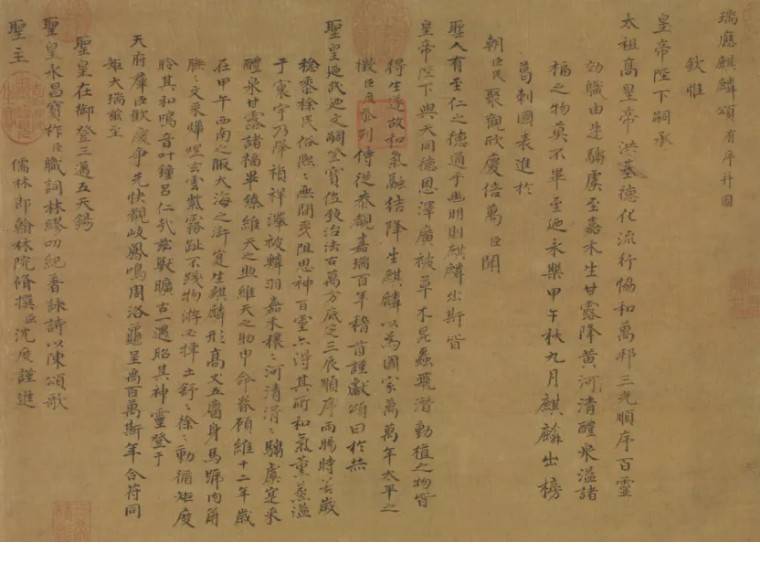 瑞應麒麟頌有序并圖
欽惟
皇帝陛下嗣承
太祖高皇帝洪基德化流行協和萬邦三光順序百靈
効職由是騶虞至嘉禾生甘露降黃河清醴泉溢諸
福之物莫不畢至迺永樂甲午秋九月麒麟出榜
葛剌國表進於
朝臣民聚觀欣慶倍萬臣聞
聖人有至仁之德通乎幽明則麒麟出斯皆
皇帝陛下與天同德恩澤廣被草木昆蟲飛潛動植之物皆
得生遂故和氣融結降生麒麟以為國家萬萬年太平之
徵臣度忝列侍從恭覩嘉瑞百拜稽首謹獻頌曰於赫
聖皇迺武迺文嗣登寶位致治法古萬方底定三辰順序雨暘時若歲
稔黍稌民俗熙〻無間彊阻思神百靈亦得其所和氣薰蒸溢
于寰宇乃降禎祥澤被羽嘉禾穰〻河清湑〻騶虞寔來
醴泉甘露諸福畢臻維天之與維天之助申命眷顧維十二年歲
在甲午西南之陬大海之滸實生麒麟形高丈五麕身馬蹄肉角
膴〻文采焜煌玄雲紫霧趾不踐物游必擇土舒〻徐〻動循矩度
聆其和鳴音叶鐘呂仁哉茲獸曠古一遇昭其神靈登于
天府羣臣歡慶爭先快覩岐鳳鳴周洛龜呈禹百萬斯年合符同
矩大瑞薦至
聖皇在御登三邁五天錫
聖皇永昌寶祚臣職詞林繆叨紀書詠詩以陳頌歌
聖主
儒林郎翰林院脩撰臣沈度謹進